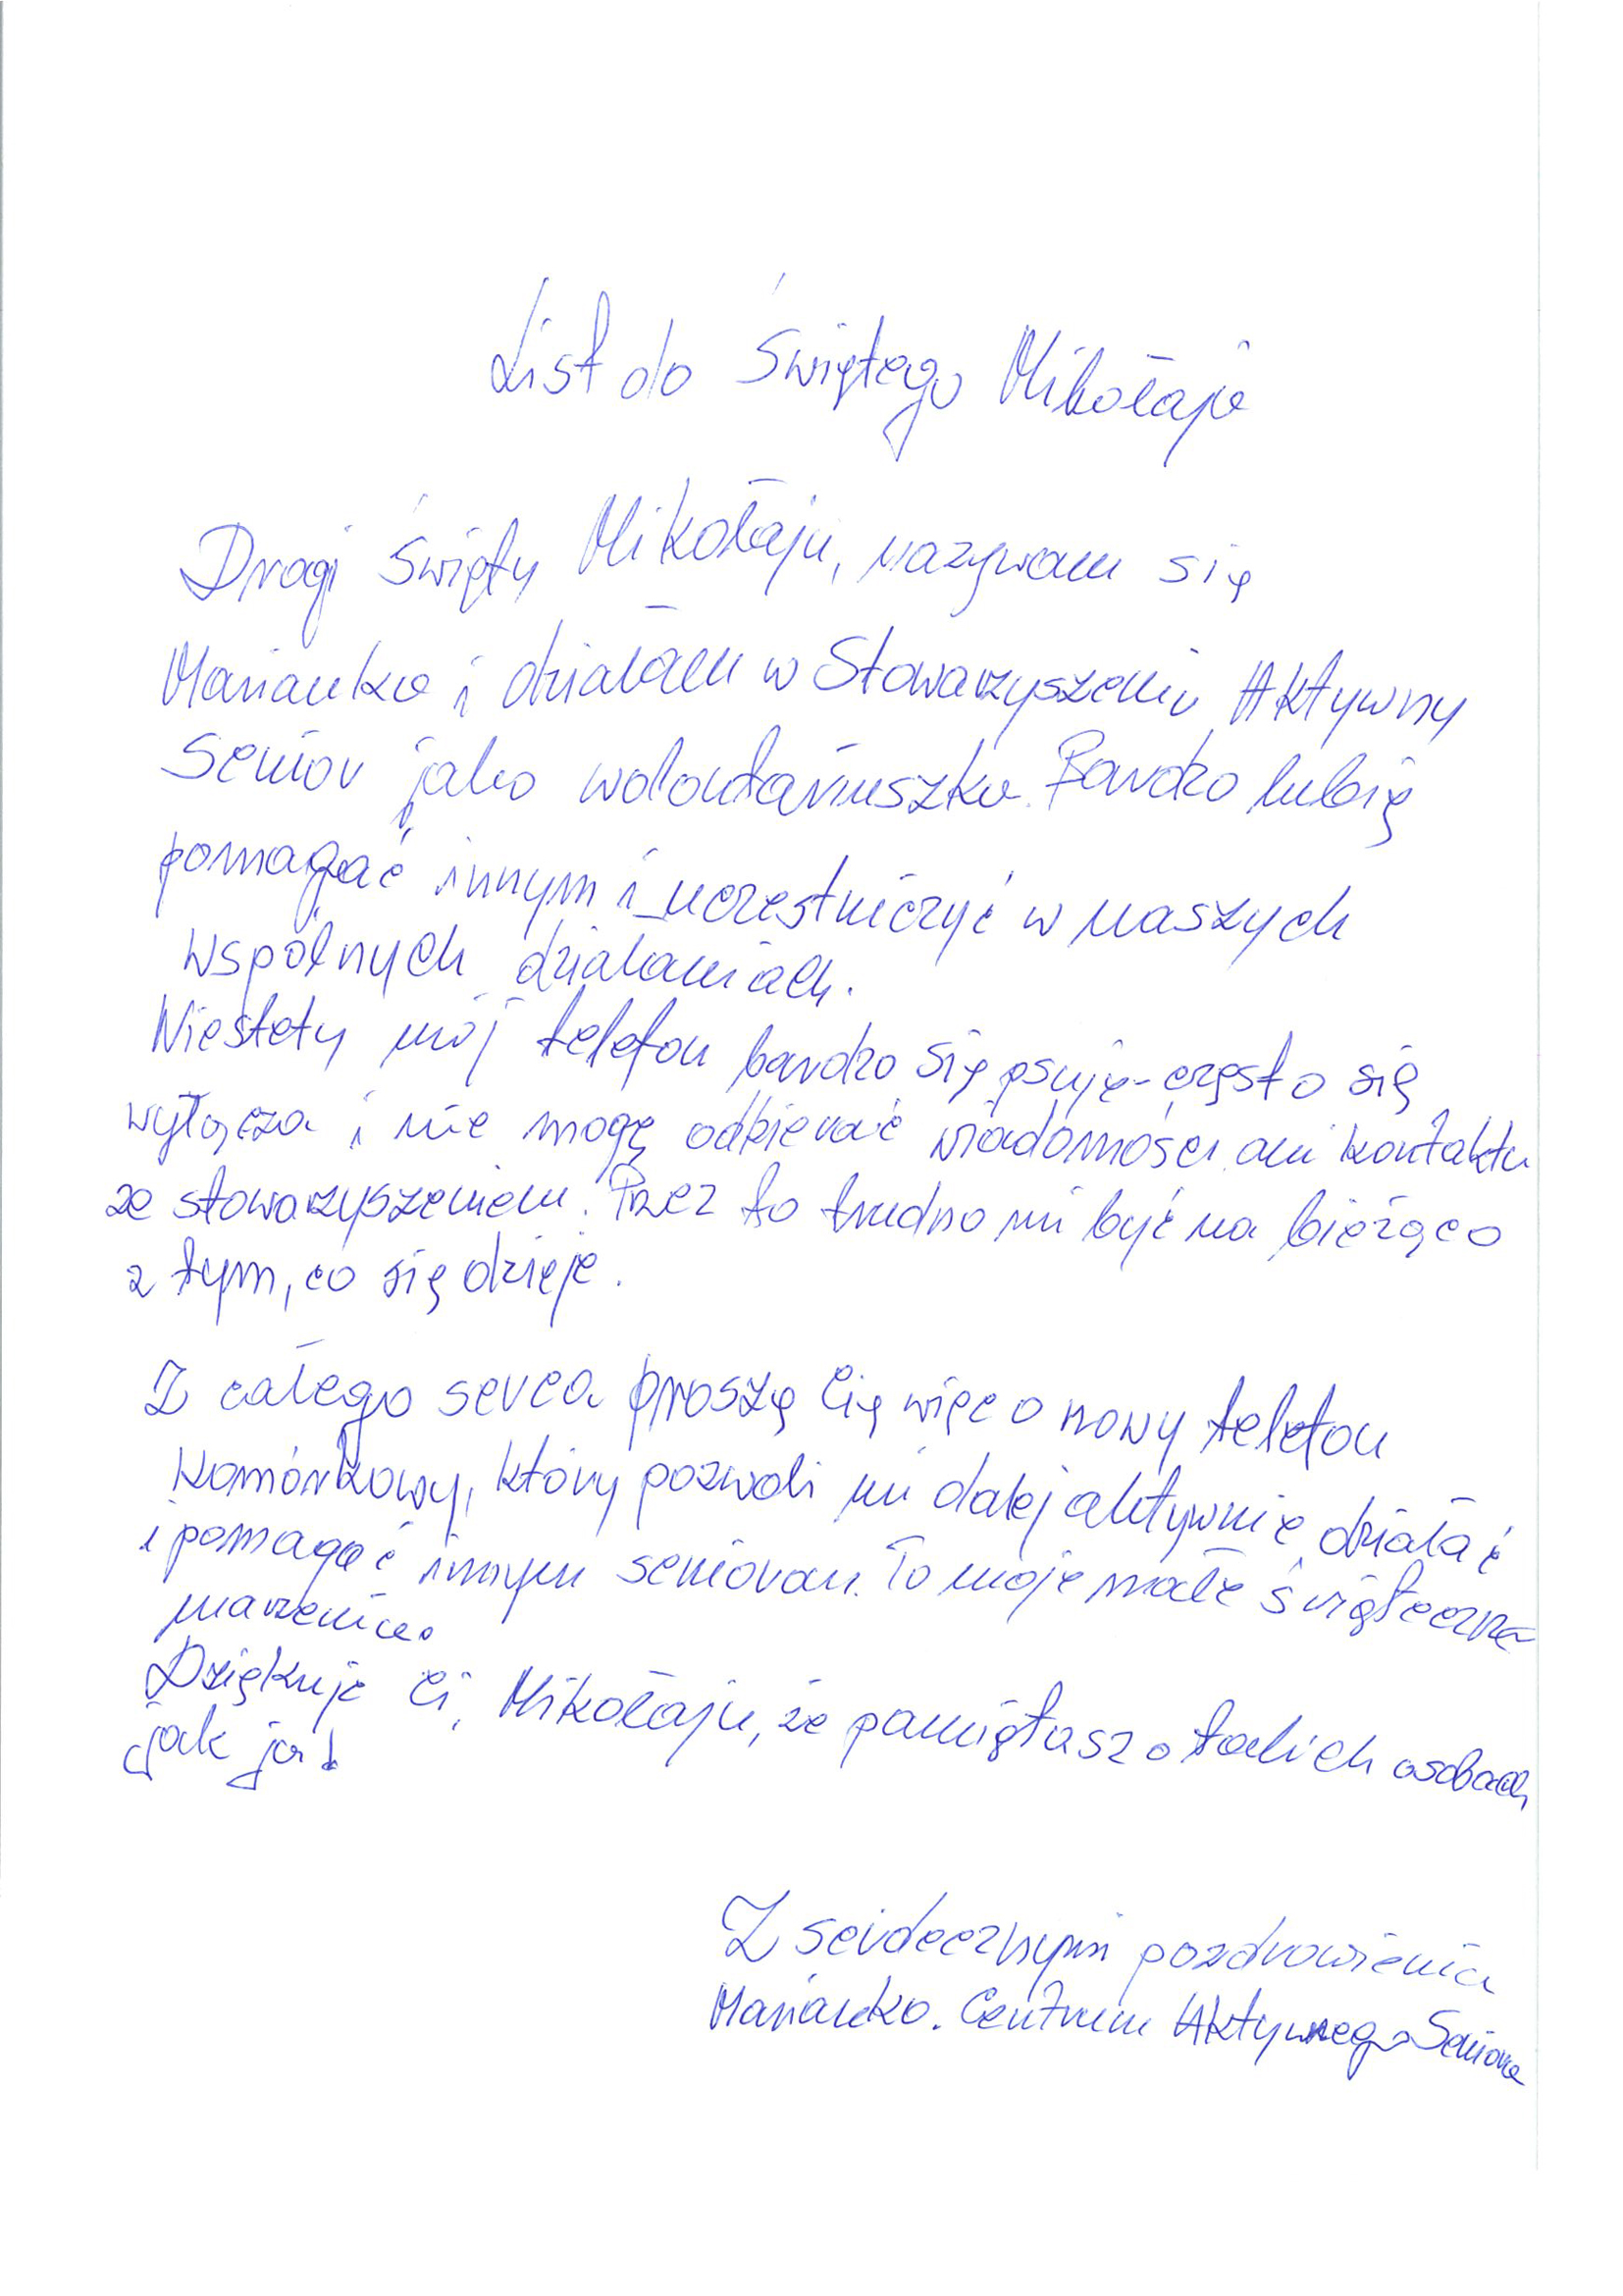 List do Świętego Mikołaja
Drogi Święty Mikołaju, nazywam się
Marianka i działam w Stowarzyszeniu Aktywny
Senior jako wolontariuszka. Bardzo lubię
pomagać innym i uczestniczyć w naszych
wspólnych działaniach.
Niestety mój telefon bardzo się psuje - często się
wyłącza i nie mogę odbierać wiadomości ani kontaktu
ze stowarzyszeniem. Przez to trudno mi być na bieżąco
z tym, co się dzieje.
Z całego serca proszę Cię więc o nowy telefon
komórkowy, który pozwoli mi dalej aktywnie działać
i pomagać innym seniorom. To moje małe świąteczne
marzenie.
Dziękuję Ci, Mikołaju, że pamiętasz o takich osobach
jak ja!
Z serdecznymi pozdrowienia
Marianka. Centrum Aktywnego Seniora